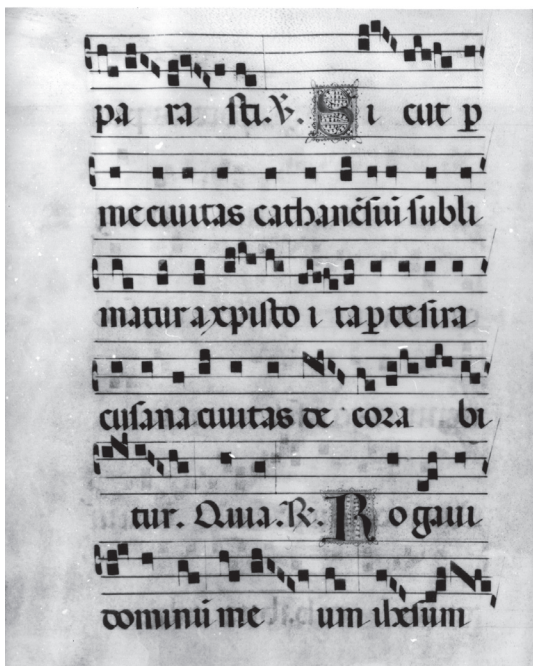 pa ra sti. V. Si cut p
me ciuitas cathanēsiū subli
matur a xpisto i ta p te sira
cusana ciuitas de cora bi
tur. Quia. R. Rogaui
dominū me um ihesum